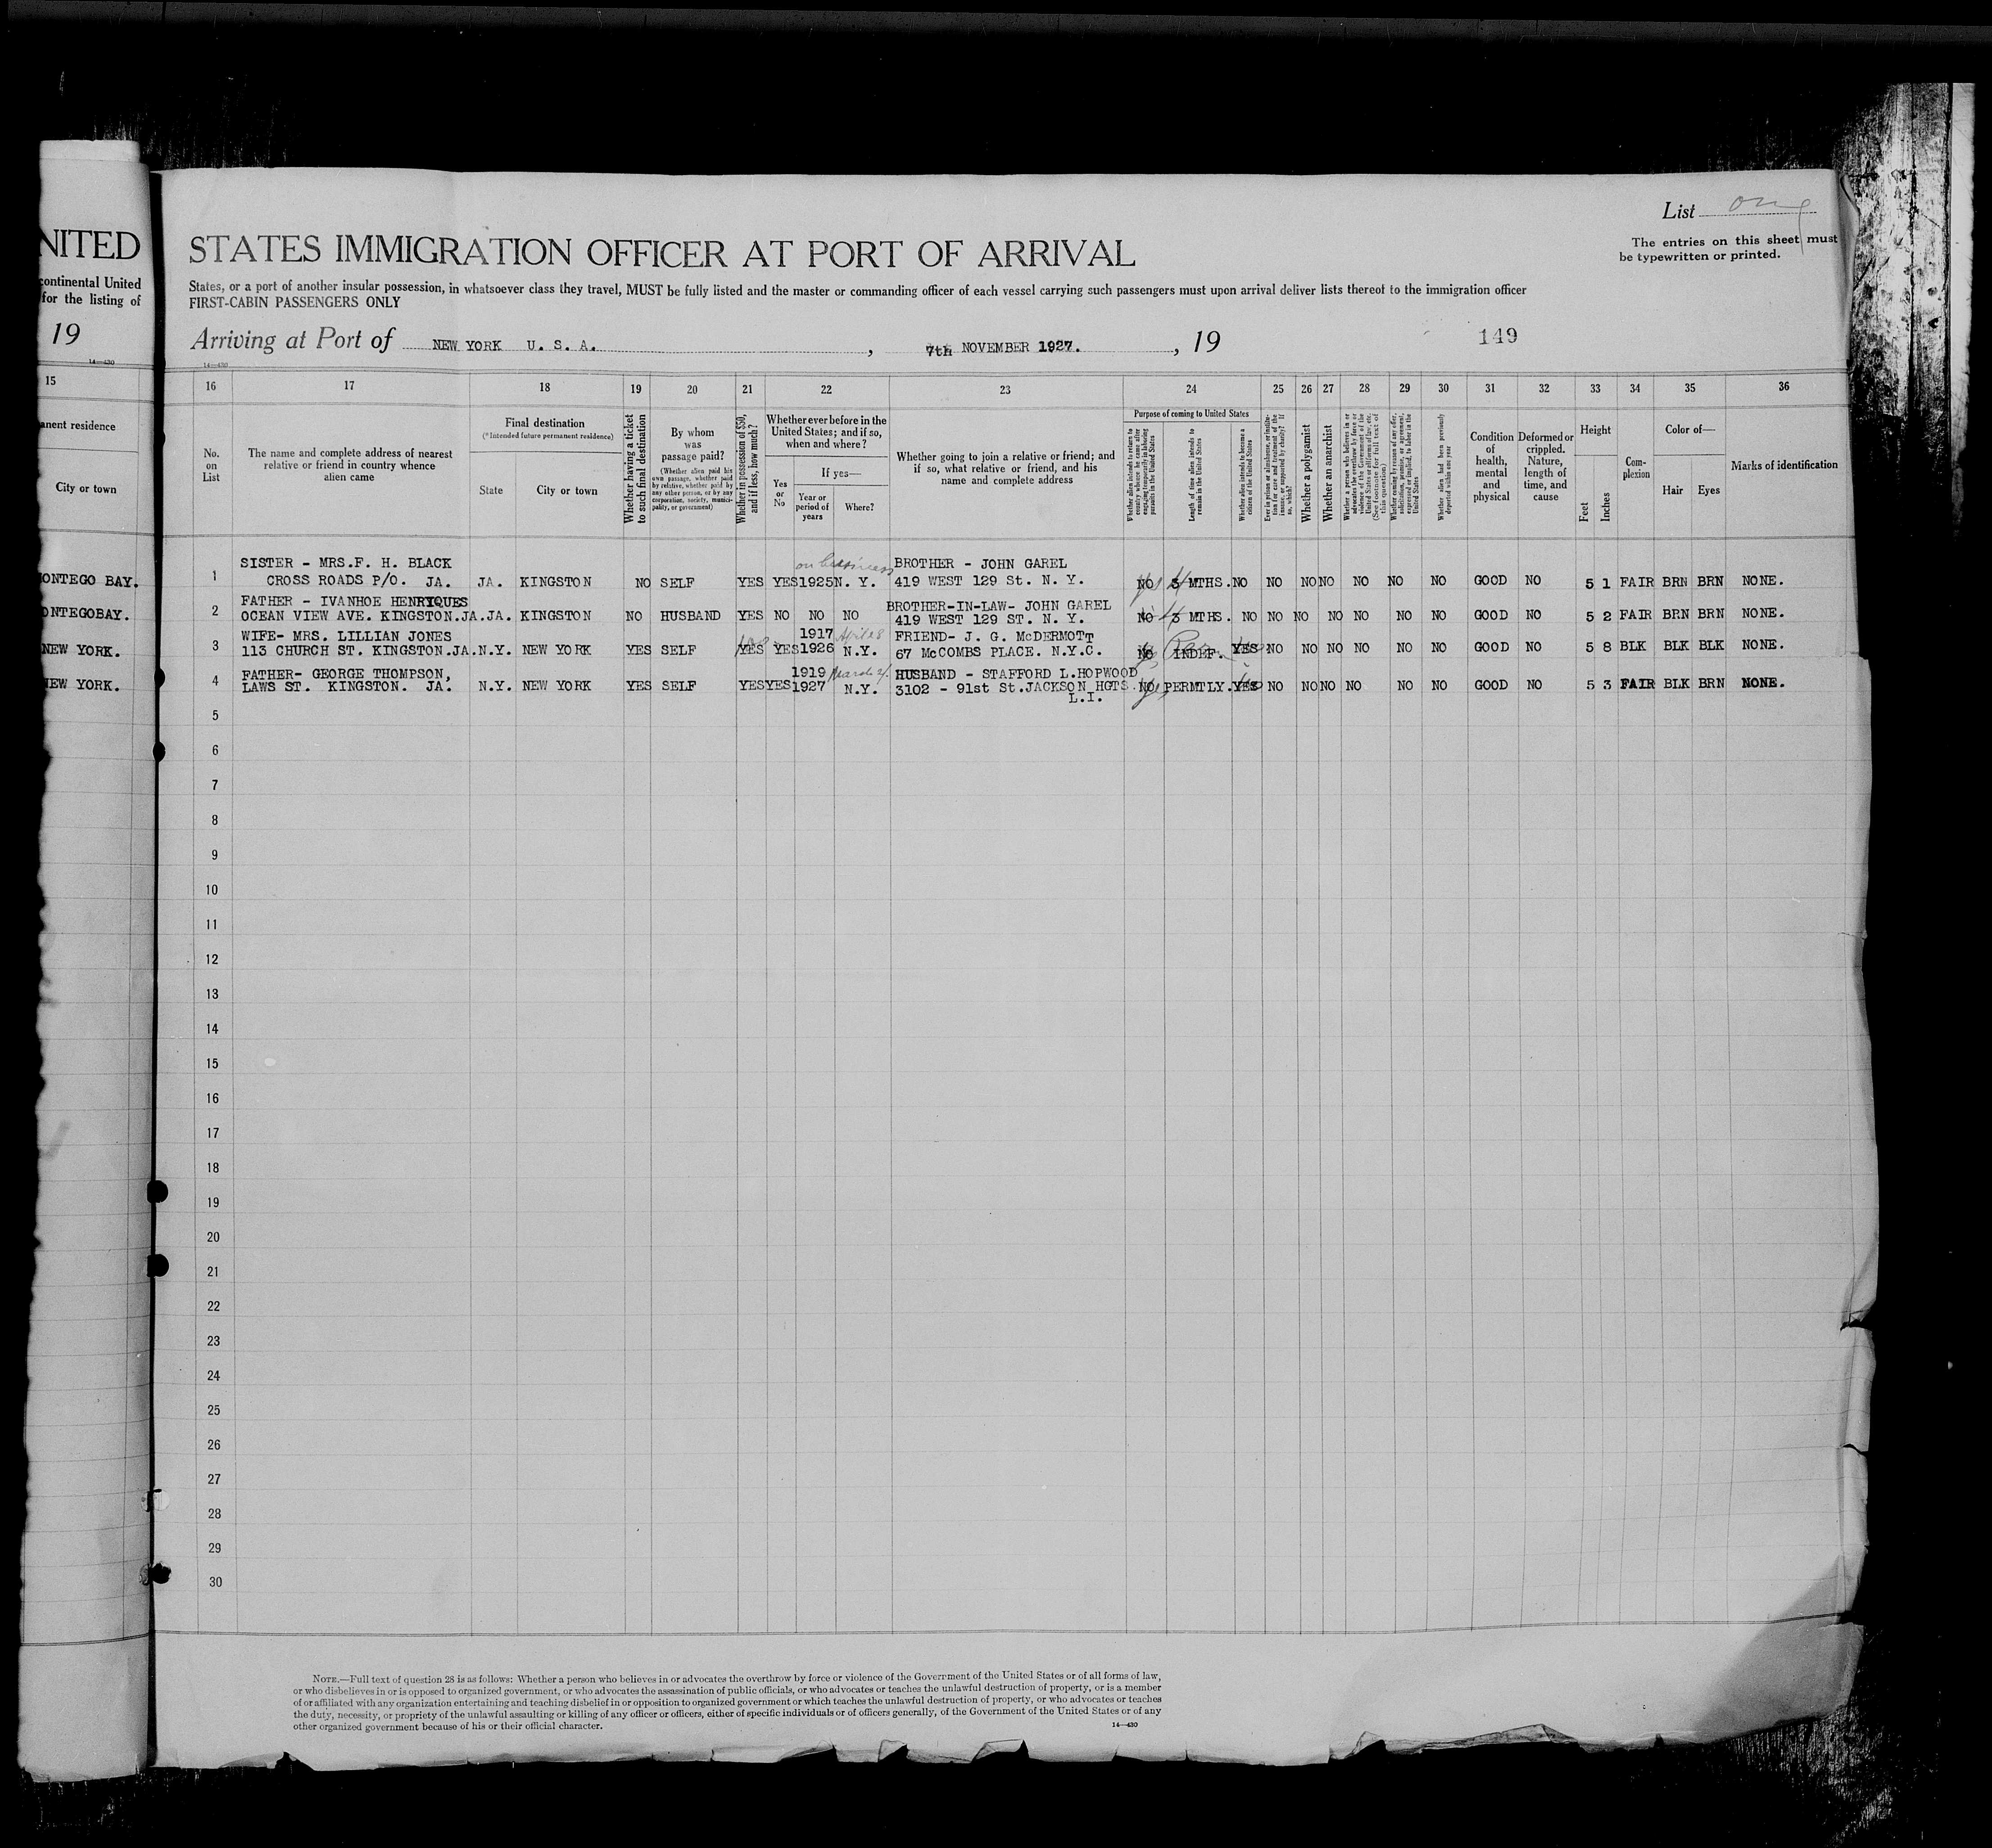 List one
The entries on this sheet must
be typewritten or printed.
NITED
STATES IMMIGRATION OFFICER AT PORT OF ARRIVAL
continental United
for the listing of
States, or a port of another insular possession, in whatsoever class they travel, MUST be fully listed and the master or commanding officer of each vessel carrying such passengers must upon arrival deliver lists thereof to the immigration officer
FIRST-CABIN PASSENGERS ONLY
19
Arriving at Port of NEW YORK U. S. A. , 7th NOVEMBER 1927. , 19 149
14—430
14—430
15 16 17 18 19 20 21 22 23 24 25 26 27 28 29 30 31 32 33 34 35 36
anent residence
City or town
No. on List
The name and complete address of nearest
relative or friend in country whence
alien came
Final destination
(*Intended future permanent residence)
State
City or town
Whether having a ticket
to such final destination
By whom
was
passage paid?
(Whether alien paid his
own passage, whether paid
by relative, whether paid by
any other person, or by any
corporation, society, munici-
pality, or government)
Whether in possession of $50,
and if less, how much?
Whether ever before in the
United States; and if so,
when and where?
If yes—
Yes
or
No
Year or
period of
years
Where?
Whether going to join a relative or friend; and
if so, what relative or friend, and his
name and complete address
Purpose of coming to United States
Whether alien intends to return to
country whence he came after
engaging temporarily in laboring
pursuits in the United States
Length of time alien intends to
remain in the United States
Whether alien intends to become a
citizen of the United States
Ever in prison or almshouse, or institu-
tion for care and treatment of the
insane, or supported by charity? If
so, which?
Whether a polygamist
Whether an anarchist
Whether a person who believes in or
advocates the overthrow by force or
violence of the Government of the
United States or all forms of law, etc.
(See footnote for full text of
this question.)
Whether coming by reason of any offer,
solicitation, promise, or agreement,
expressed or implied, to labor in the
United States
Whether alien had been previously
deported within one year
Condition
of
health,
mental
and
physical
Deformed or
crippled.
Nature,
length of
time, and
cause
Height
Feet
Inches
Com-
plexion
Color of—
Hair
Eyes
Marks of identification
SISTER - MRS.F. H. BLACK on business BROTHER - JOHN GAREL
ONTEGO BAY. 1 CROSS ROADS P/O. JA. JA. KINGSTON NO SELF YES YES 1925 N. Y. 419 WEST 129 St. N. Y. NO 3 MTHS. NO NO NO NO NO NO NO GOOD NO 5 1 FAIR BRN BRN NONE.
FATHER - IVANHOE HENRIQUES BROTHER-IN-LAW- JOHN GAREL
ONTEGOBAY. 2 OCEAN VIEW AVE. KINGSTON.JA. JA. KINGSTON NO HUSBAND YES NO NO NO 419 WEST 129 ST. N. Y. NO 3 MTHS. NO NO NO NO NO NO NO GOOD NO 5 2 FAIR BRN BRN NONE.
WIFE- MRS. LILLIAN JONES 1917 April 28 FRIEND- J. G. McDERMOTT
NEW YORK. 3 113 CHURCH ST. KINGSTON.JA. N.Y. NEW YORK YES SELF YES YES 1926 N.Y. 67 McCOMBS PLACE. N.Y.C. NO INDEF. YES NO NO NO NO NO NO GOOD NO 5 8 BLK BLK BLK NONE.
FATHER- GEORGE THOMPSON, 1919 March HUSBAND - STAFFORD L.HOPWOOD
NEW YORK. 4 LAWS ST. KINGSTON. JA. N.Y. NEW YORK YES SELF YES YES 1927 N.Y. 3102 - 91st St.JACKSON HGTS. NO PERMTLY. YES NO NO NO NO NO NO GOOD NO 5 3 FAIR BLK BRN NONE.
L.I.
5
6
7
8
9
10
11
12
13
14
15
16
17
18
19
20
21
22
23
24
25
26
27
28
29
30
NOTE.—Full text of question 28 is as follows: Whether a person who believes in or advocates the overthrow by force or violence of the Government of the United States or of all forms of law,
or who disbelieves in or is opposed to organized government, or who advocates the assassination of public officials, or who advocates or teaches the unlawful destruction of property, or is a member
of or affiliated with any organization entertaining and teaching disbelief in or opposition to organized government or which teaches the unlawful destruction of property, or who advocates or teaches
the duty, necessity, or propriety of the unlawful assaulting or killing of any officer or officers, either of specific individuals or of officers generally, of the Government of the United States or of any
other organized government because of his or their official character.
14—430